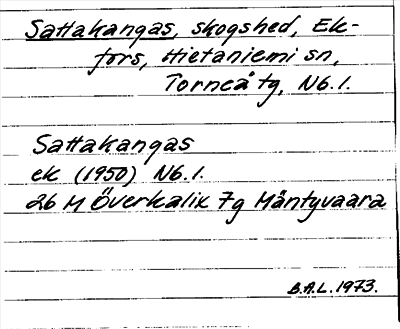 Sattakangas, skogshed, Ek-
fors, Hietaniemi sn,
Torneå tg, Nb. l.
Sattakangas
ek (1950) Nb. l.
26 M Överkalix 7g Mäntyvaara
B.A.L. 1973.